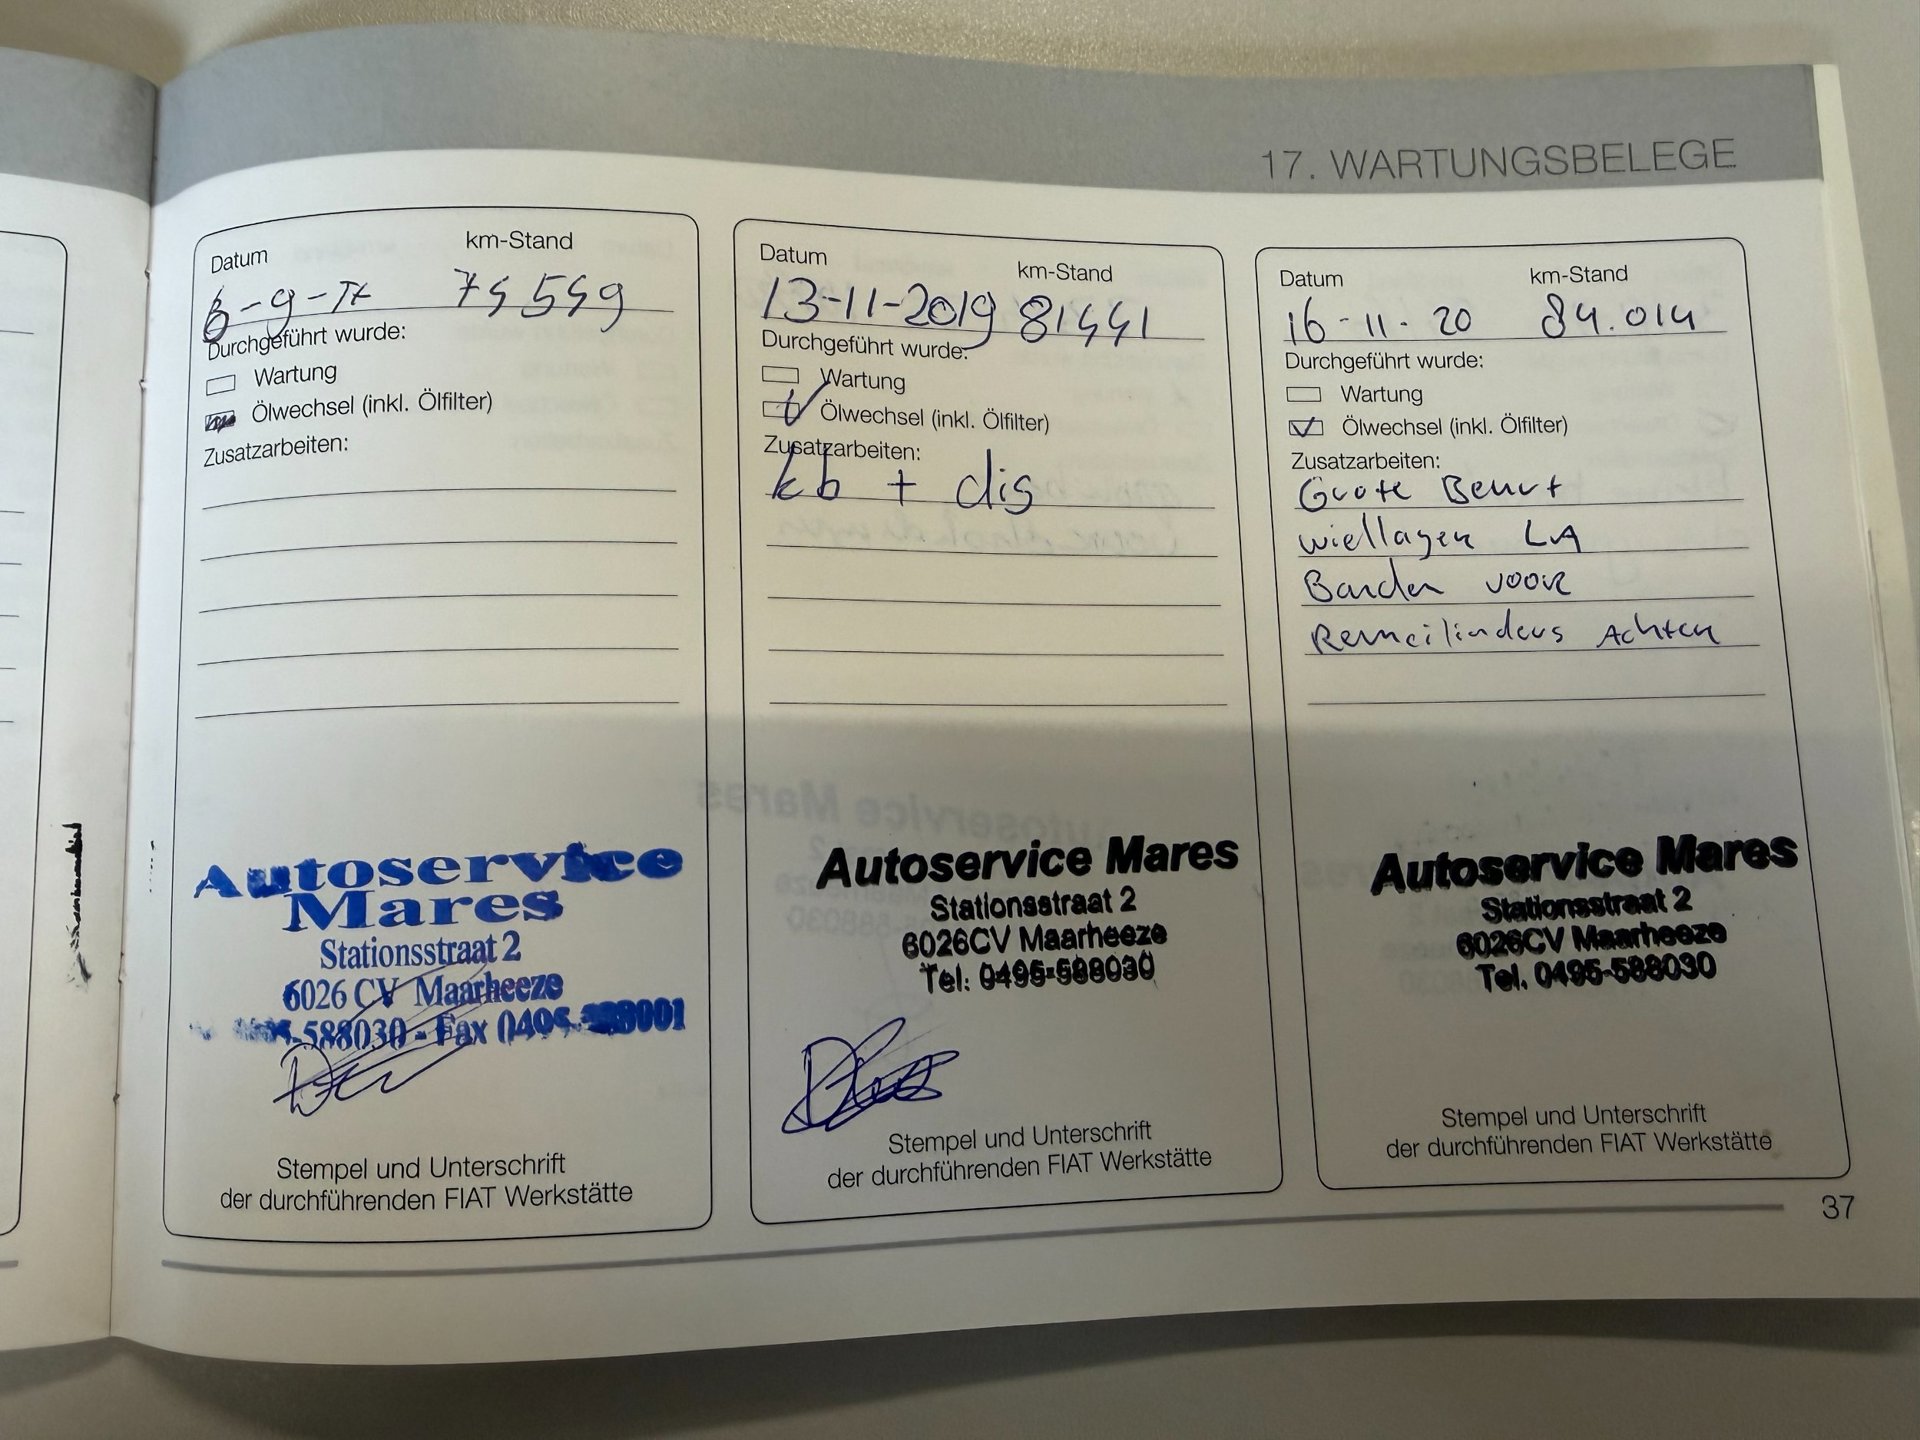 17. WARTUNGSBELEGE
Datum km-Stand
Durchgeführt wurde:
Wartung
Ölwechsel (inkl. Ölfilter)
Zusatzarbeiten:
Autoservice
Mares
Stationsstraat 2
6026 CV Maarheeze
-588030 - Fax
Stempel und Unterschrift
der durchführenden FIAT Werkstätte
Datum km-Stand
13-11-2019 81441
Durchgeführt wurde:
Wartung
Ölwechsel (inkl. Ölfilter)
Zusatzarbeiten:
kb + dis
Autoservice Mares
Stationsstraat 2
6026CV Maarheeze
Tel. 0495-588030
Stempel und Unterschrift
der durchführenden FIAT Werkstätte
Datum km-Stand
16-11-20 84.014
Durchgeführt wurde:
Wartung
Ölwechsel (inkl. Ölfilter)
Zusatzarbeiten:
Grote Beurt
wiellagen LA
Banden voor
Remcilinders Achter
Autoservice Mares
Stationsstraat 2
6026CV Maarheeze
Tel. 0495-588030
Stempel und Unterschrift
der durchführenden FIAT Werkstätte
37